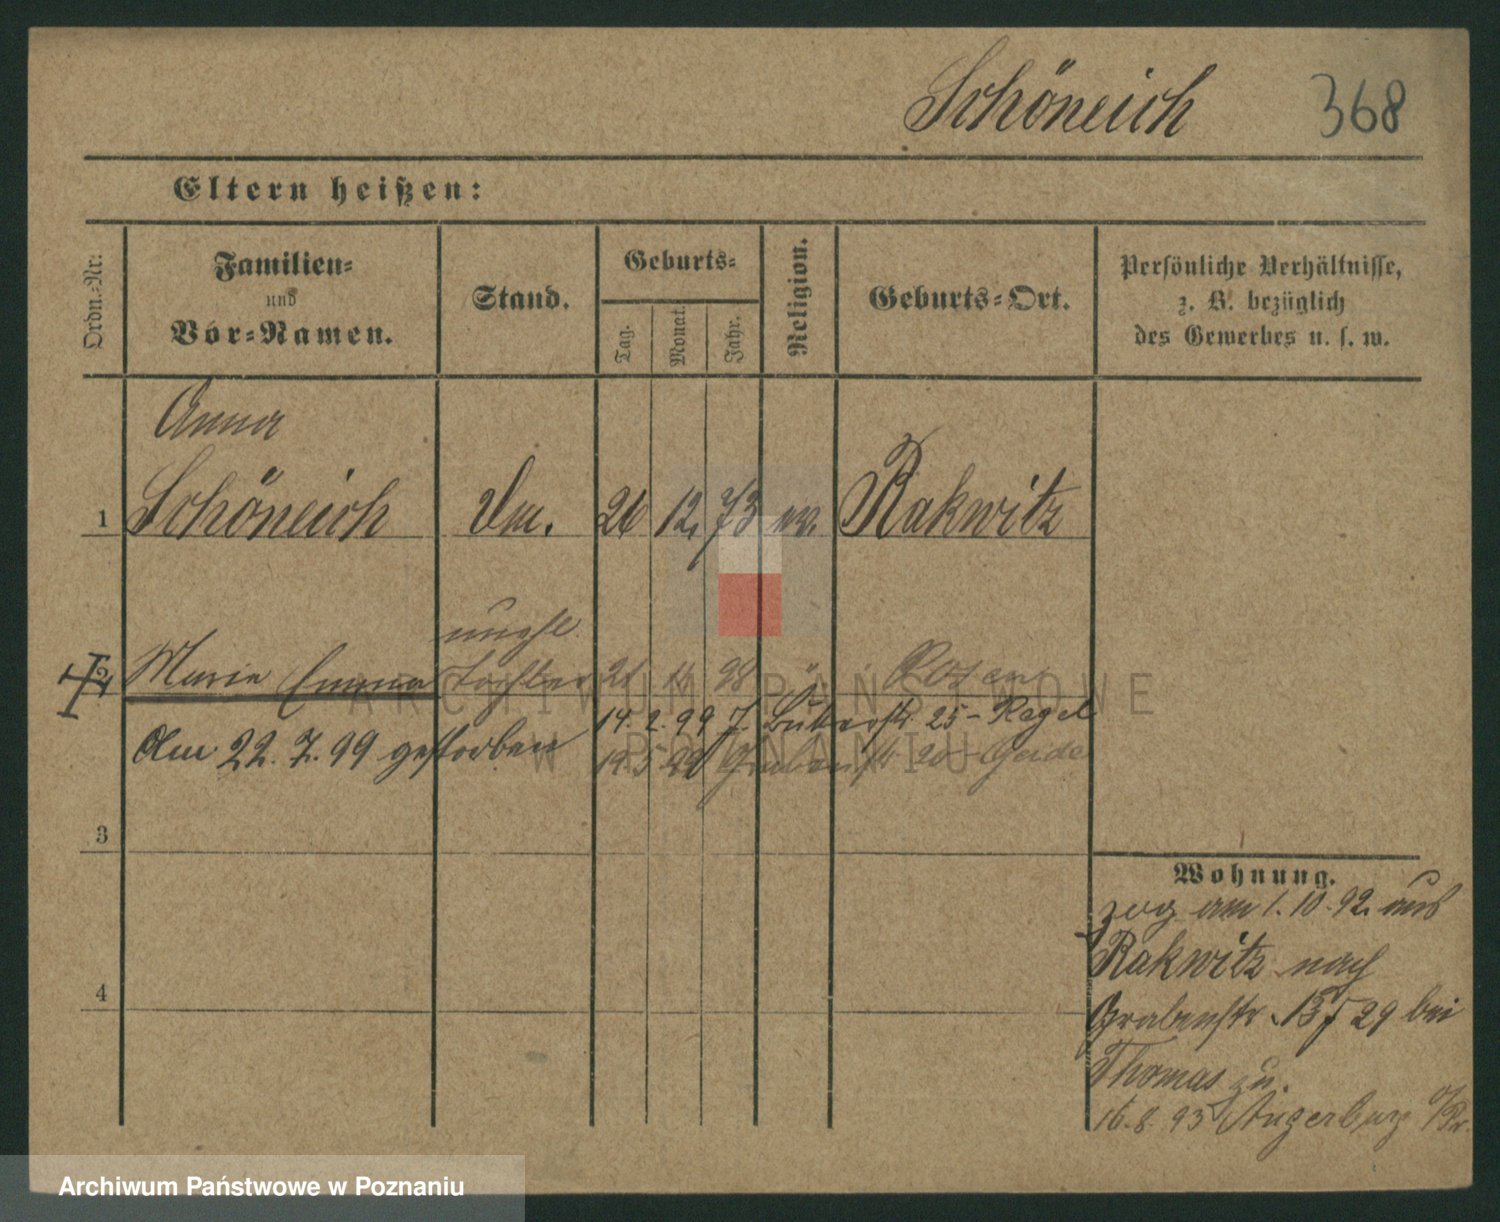 Schöneich 368
Eltern heißen:
Ordn.-Nr:
Familien-
und
Vor-Namen.
Stand.
Geburts-
Tag.
Monat.
Jahr.
Religion.
Geburts-Ort.
Persönliche Verhältnisse,
z. B. bezüglich
des Gewerbes u. s. w.
Anna
1 Schöneich 26 12. 73 ev. Rakwitz
unehl.
2 Marie Emma Tochter 21 11 98 Posen
14. 2. 99 25 - Regel
Am 22. 7. 99 gestorben
Grabenstr 20
3
4
Wohnung.
zog am 1. 10. 92. aus
Rakwitz nach
Grabenstr. 29 bei
Thomas zu.
16. 8. 93 Angerburg O/Pr.
ARCHIWUM PAŃSTWOWE
W POZNANIU
Archiwum Państwowe w Poznaniu